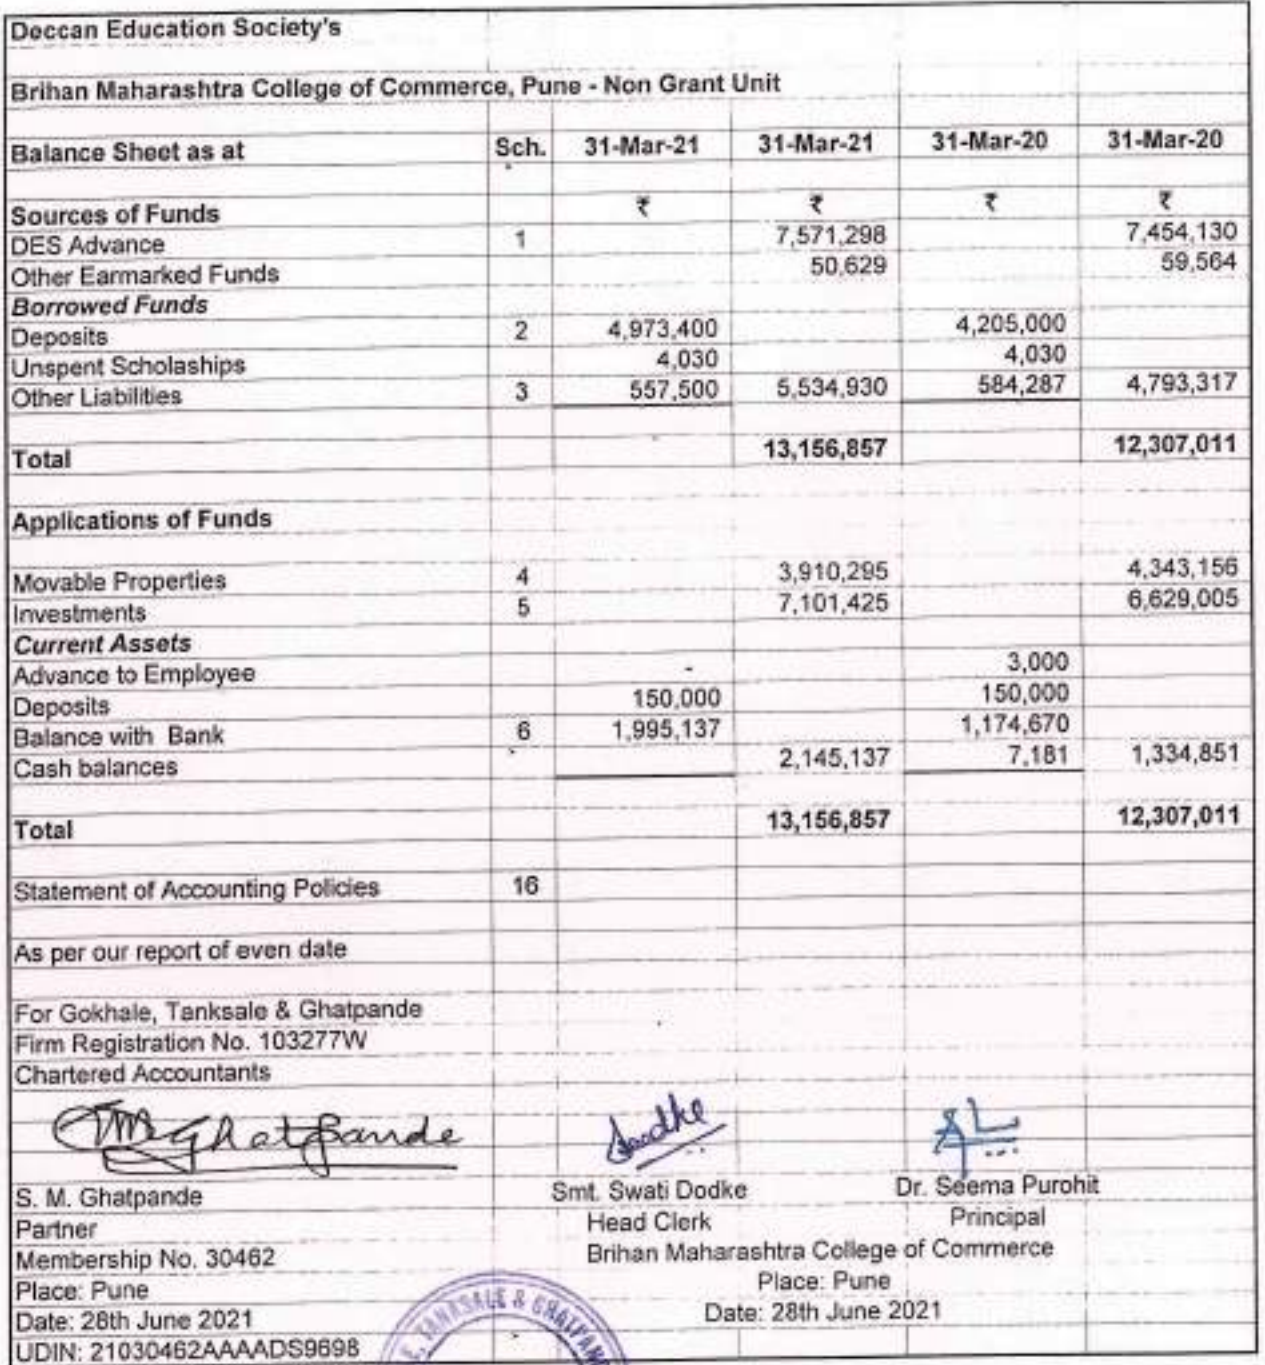 Deccan Education Society's
Brihan Maharashtra College of Commerce, Pune - Non Grant Unit
Balance Sheet as at Sch. 31-Mar-21 31-Mar-21 31-Mar-20 31-Mar-20
Sources of Funds ₹ ₹ ₹ ₹
DES Advance 1 7,571,298 7,454,130
Other Earmarked Funds 50,629 59,564
Borrowed Funds
Deposits 2 4,973,400 4,205,000
Unspent Scholaships 4,030 4,030
Other Liabilities 3 557,500 5,534,930 584,287 4,793,317
Total 13,156,857 12,307,011
Applications of Funds
Movable Properties 4 3,910,295 4,343,156
Investments 5 7,101,425 6,629,005
Current Assets
Advance to Employee - 3,000
Deposits 150,000 150,000
Balance with Bank 6 1,995,137 1,174,670
Cash balances 2,145,137 7,181 1,334,851
Total 13,156,857 12,307,011
Statement of Accounting Policies 16
As per our report of even date
For Gokhale, Tanksale & Ghatpande
Firm Registration No. 103277W
Chartered Accountants
SMGhatpande
S. M. Ghatpande Smt. Swati Dodke Dr. Seema Purohit
Partner Head Clerk Principal
Membership No. 30462 Brihan Maharashtra College of Commerce
Place: Pune Place: Pune
Date: 28th June 2021 Date: 28th June 2021
UDIN: 21030462AAAADS9698